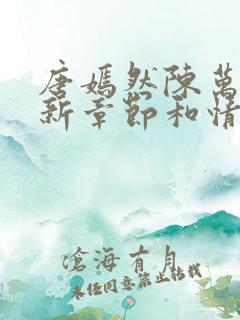 唐嫣然陳萬
新章節和情
滄海有月
未经同意禁止转载